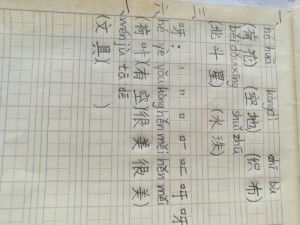 hé huā kòng dì zhī bù
(荷花) (空地) (织布)
běi dǒu xīng shuǐ zhū
(北斗星) (水珠)
三、
呀:
hé yè yǒu kòng hěn měi hěn měi
(荷叶)(有空)(很美 很美)
wén jù
(文具)( )